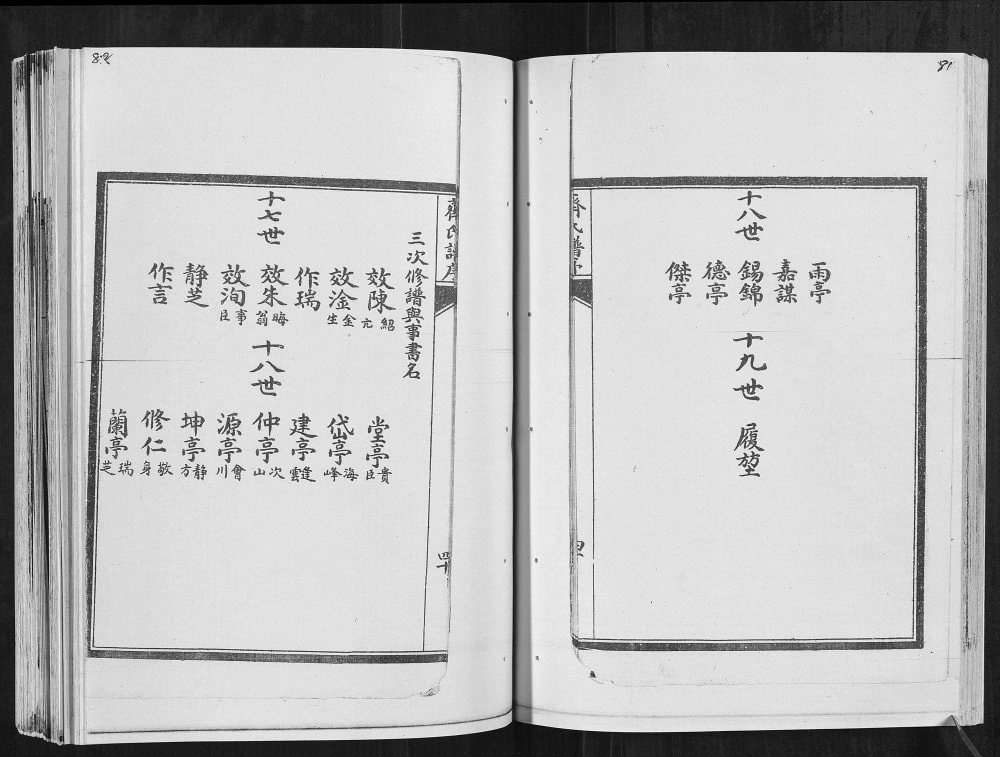 81
齊氏譜序
十八世
雨亭
嘉謀
錫錦
德亭
傑亭
十九世
履堃
82
齊氏譜序
四十
三次修譜與事書名
十七世
效陳 紹亢
效淦 金生
作瑞
效朱 晦翁
效洵 事臣
靜芝
作言
十八世
堂亭 貴臣
岱亭 海峰
建亭 逢雲
仲亭 次山
源亭 會川
坤亭 靜方
修仁 敬身
蘭亭 瑞芝